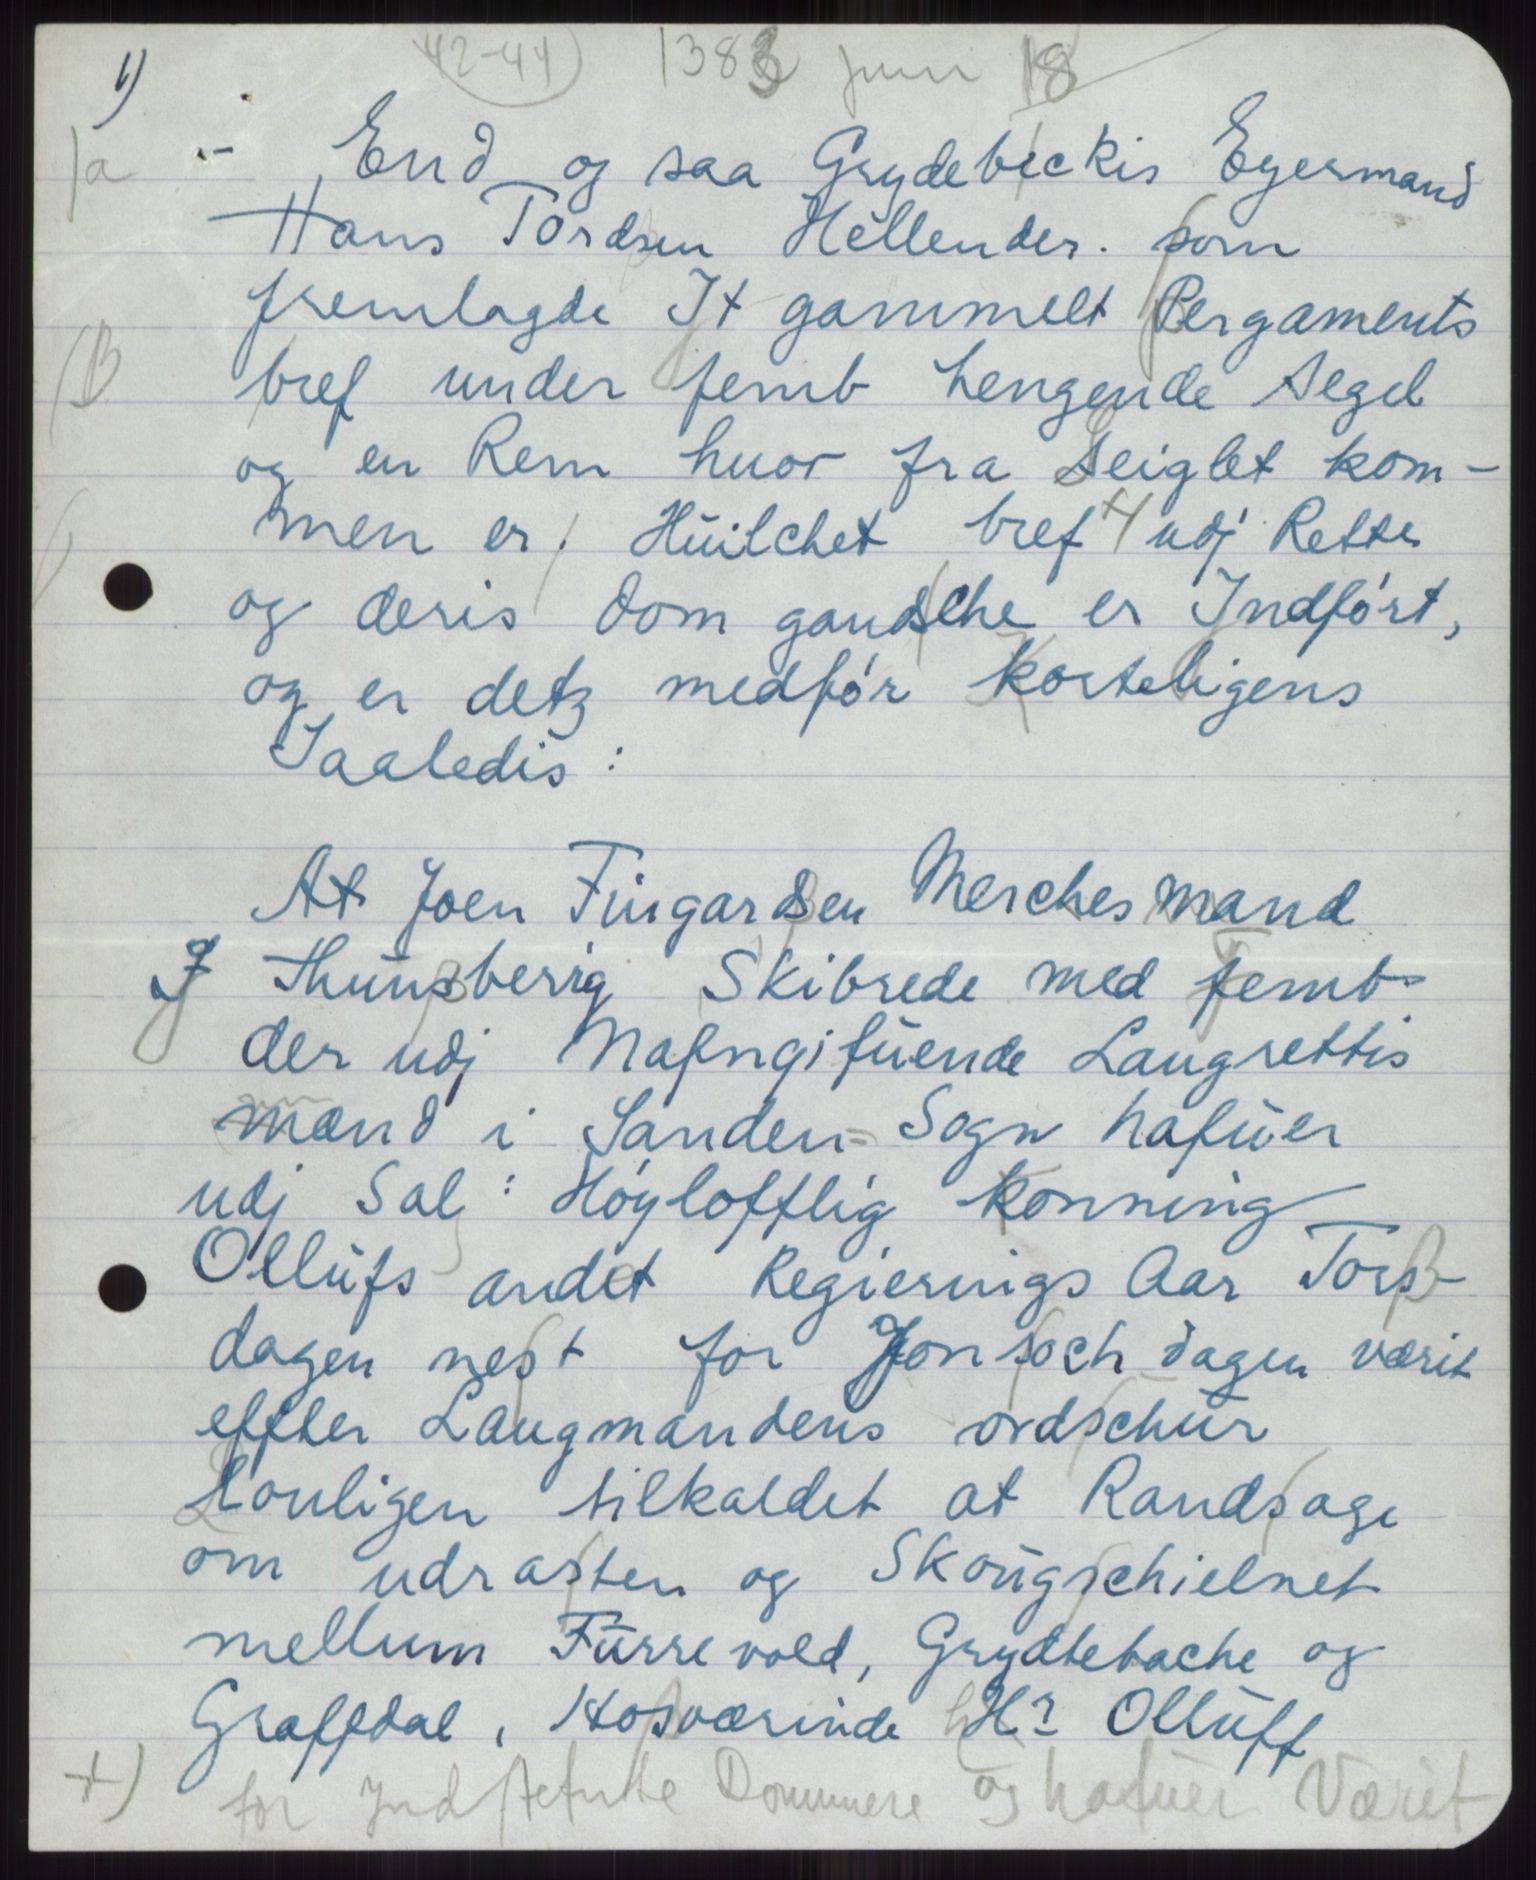 42-44 1383 Juni 18
1)
End og saa Grydebeckis Eyermand
Hans Tordsen Hellender. som
fremlagde It gammelt Pergaments
bref under femb hengende Segel
og en Rem huor fra Seiglet kom-
men er. Hŭilchet bref +) udj Rette
og deris Dom gandsche er Indfört,
og er detz medför korteligens
Saaledis:
At Joen Fingardsen Merchesmand
J Thŭnsberrig Skibrede med femb
der udj Nafngifŭende Laugrettis
mænd i Sanden= Sogn hafŭer
udj Sal: Höylofflig Konning
Ollŭfs andet Regierings Aar Tors-
dagen nest for Jonsoch dagen værit
effter Laugmandens ordschŭr
Louligen tilkaldet at Randsage
om udrasten og Skoŭgschielnet
mellum Fŭrrevold, Grydtebache og
Graffdal, Hosværinde Hr Ollŭff
+) for Indstefnte Dommere og hafuer Værit